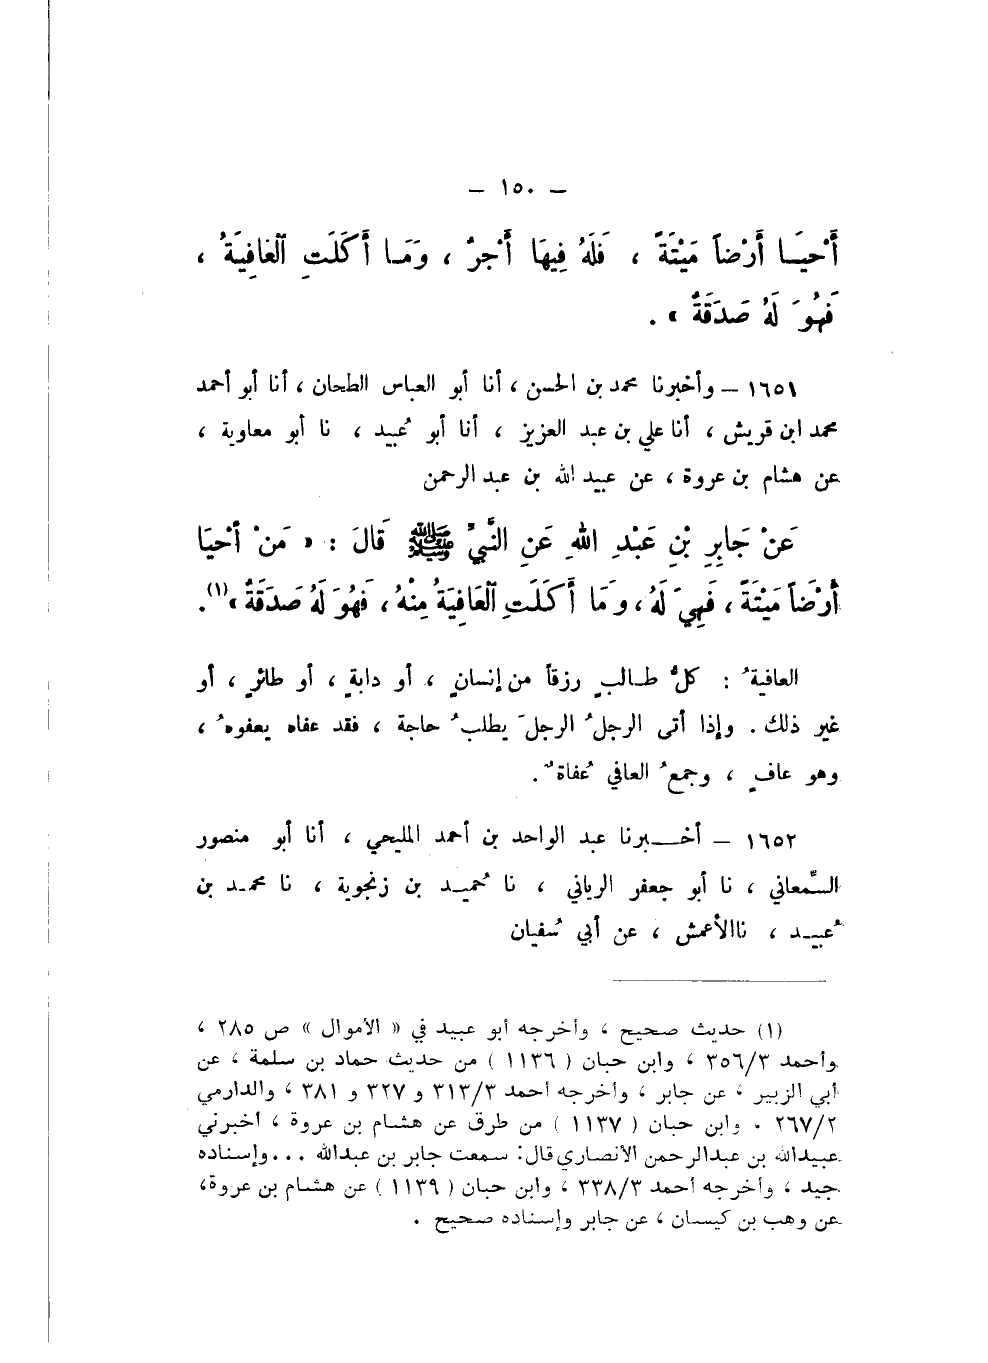 — ١٥٠ —
أَحْيَـا أَرْضاً مَيْتَةً ، فَلَهُ فِيهَا أَجْرٌ ، وَمَـا أَكَلَتِ ٱلْعَافِيَةُ ،
فَهُوَ لَهُ صَدَقَةٌ » .
١٦٥١ – وأخبرنا محمد بن الحسن ، أنا أبو العباس الطحان ، أنا أبو أحمد
محمد ابن قريش ، أنا علي بن عبد العزيز ، أنا أبو عُبيد ، نا أبو معاوية ،
عن هشام بن عروة ، عن عبيد الله بن عبد الرحمن
عَنْ جَابِرِ بْنِ عَبْدِ اللهِ عَنِ النَّبِيِّ ﷺ قَالَ : « مَنْ أَحْيَا
أَرْضَاً مَيْتَةً ، فَهِيَ لَهُ ، وَمَا أَكَلَتِ ٱلْعَافِيَةُ مِنْهُ ، فَهُوَ لَهُ صَدَقَةٌ »(١).
العافيةُ : كلُّ طـالبٍ رزقاً من إنسانٍ ، أو دابةٍ ، أو طائرٍ ، أو
غير ذلك . وإذا أتى الرجلُ الرجلَ يطلبُ حاجة ، فقد عفاه يعفوهُ ،
وهو عافٍ ، وجمعُ العافي عُفاةٌ .
١٦٥٢ – أخـــبرنا عبد الواحد بن أحمد المليحي ، أنا أبو منصور
السَّمعاني ، نا أبو جعفر الرياني ، نا حُميـد بن زنجوية ، نا محمـد بن
عُبيـد ، نا الأعمش ، عن أبي سُفيان
(١) حديث صحيح ، وأخرجه أبو عبيد في « الأموال » ص ٢٨٥ ،
وأحمد ٣٥٦/٣ ، وابن حبان ( ١١٣٦ ) من حديث حماد بن سلمة ، عن
أبي الزبير ، عن جابر ، وأخرجه أحمد ٣١٣/٣ و ٣٢٧ و ٣٨١ ، والدارمي
٢٦٧/٢ . وابن حبان ( ١١٣٧ ) من طرق عن هشام بن عروة ، أخبرني
عبيدالله بن عبدالرحمن الأنصاري قال: سمعت جابر بن عبدالله ...وإسناده
جيد ، وأخرجه أحمد ٣٣٨/٣ ، وابن حبان ( ١١٣٩ ) عن هشام بن عروة،
عن وهب بن كيسان ، عن جابر وإسناده صحيح .